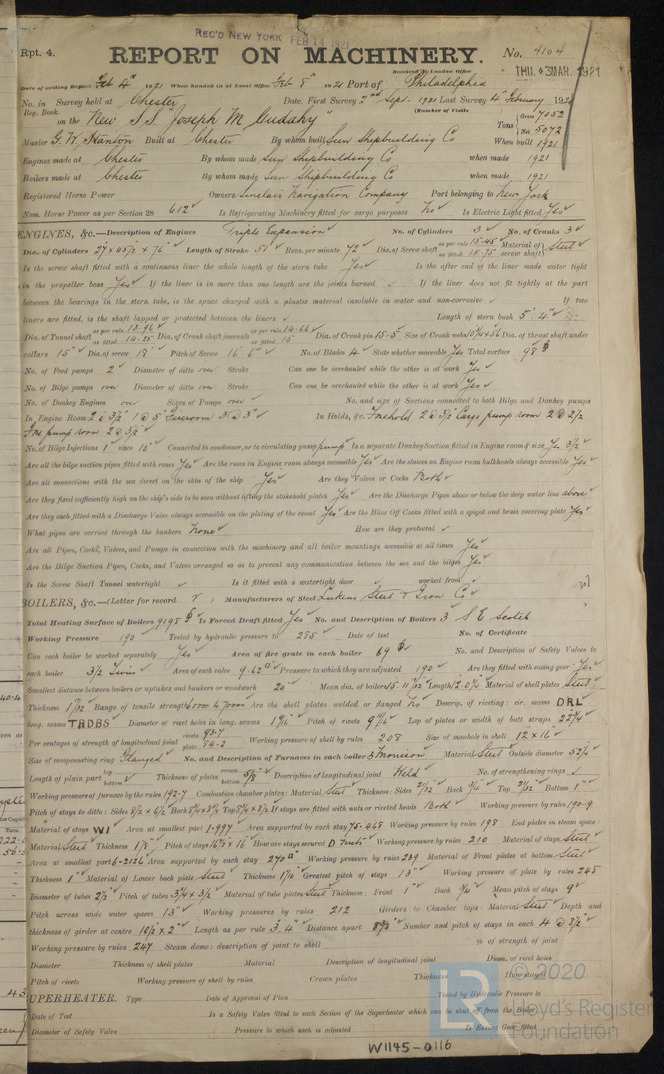 REC'D NEW YORK FEB 14 1921
Rpt. 4.
REPORT ON MACHINERY.
No. 4104
Received at London Office
THU. 3 MAR. 1921
Date of writing Report Feb 4th 1921 When handed in at Local Office Feb 8th 1921 Port of Philadelphia
No. in Reg. Book. Survey held at Chester Date, First Survey 2nd Sept. 1921 Last Survey 4th February 192
(Number of Visits
on the New S.S. "Joseph M Cudahy" Tons { Gross 7052 Net 5072
Master G. W. Stanton Built at Chester By whom built Sun Shipbuilding Co When built 1921
Engines made at Chester By whom made Sun Shipbuilding Co when made 1921
Boilers made at Chester By whom made Sun Shipbuilding Co when made 1921
Registered Horse Power Owners Sinclair Navigation Company Port belonging to New York
Nom. Horse Power as per Section 28 612 Is Refrigerating Machinery fitted for cargo purposes No Is Electric Light fitted Yes
ENGINES, &c.—Description of Engines Triple Expansion No. of Cylinders 3 No. of Cranks 3
Dia. of Cylinders 27 x 45½ x 76" Length of Stroke 51" Revs. per minute 72 Dia. of Screw shaft as per rule 15.45 as fitted 15.75 Material of screw shaft Steel
Is the screw shaft fitted with a continuous liner the whole length of the stern tube Yes Is the after end of the liner made water tight
in the propeller boss Yes If the liner is in more than one length are the joints burned If the liner does not fit tightly at the part
between the bearings in the stern tube, is the space charged with a plastic material insoluble in water and non-corrosive If two
liners are fitted, is the shaft lapped or protected between the liners Length of stern bush 5' 4"
Dia. of Tunnel shaft as per rule 13.96 as fitted 14.25 Dia. of Crank shaft journals as per rule 14.66 as fitted 15 Dia. of Crank pin 15.5 Size of Crank webs Dia. of thrust shaft under
collars 15" Dia. of screw 18' Pitch of Screw 16' 6" No. of Blades 4 State whether moveable Yes Total surface 98
No. of Feed pumps 2 Diameter of ditto over Stroke Can one be overhauled while the other is at work Yes
No. of Bilge pumps over Diameter of ditto over Stroke Can one be overhauled while the other is at work Yes
No. of Donkey Engines over Sizes of Pumps over No. and size of Suctions connected to both Bilge and Donkey pumps
In Engine Room 2 @ 3½" 1 @ 5" Fireroom 3 @ 3" In Holds, &c. Forehold 2 @ 3½ Cargo pump room 2 @ 2½
Fore pump room 2 @ 3½"
No. of Bilge Injections 1 sizes 10" Connected to condenser, or to circulating pump pump Is a separate Donkey Suction fitted in Engine room & size Yes 3½
Are all the bilge suction pipes fitted with roses Yes Are the roses in Engine room always accessible Yes Are the sluices on Engine room bulkheads always accessible Yes
Are all connections with the sea direct on the skin of the ship Yes Are they Valves or Cocks Both
Are they fixed sufficiently high on the ship's side to be seen without lifting the stokehold plates Yes Are the Discharge Pipes above or below the deep water line above
Are they each fitted with a Discharge Valve always accessible on the plating of the vessel Yes Are the Blow Off Cocks fitted with a spigot and brass covering plate Yes
What pipes are carried through the bunkers None How are they protected
Are all Pipes, Cocks, Valves, and Pumps in connection with the machinery and all boiler mountings accessible at all times Yes
Are the Bilge Suction Pipes, Cocks, and Valves arranged so as to prevent any communication between the sea and the bilges Yes
Is the Screw Shaft Tunnel watertight Is it fitted with a watertight door worked from
BOILERS, &c.—(Letter for record ) Manufacturers of Steel Lukens Steel & Iron Co
Total Heating Surface of Boilers 9198 Is Forced Draft fitted Yes No. and Description of Boilers 3 S E Scotch
Working Pressure 190 Tested by hydraulic pressure to 285 Date of test No. of Certificate
Can each boiler be worked separately Yes Area of fire grate in each boiler 69 No. and Description of Safety Valves to
each boiler 3½ Twin Area of each valve 9.62 Pressure to which they are adjusted 190 Are they fitted with easing gear Yes
Smallest distance between boilers or uptakes and bunkers or woodwork 20" Mean dia. of boilers 15' 11 Length 12' 0¼ Material of shell plates Steel
Thickness 1 Range of tensile strength Are the shell plates welded or flanged No Descrip. of riveting: cir. seams DRL
long. seams TRDBS Diameter of rivet holes in long. seams 1 Pitch of rivets 9 Lap of plates or width of butt straps 22¾
Per centages of strength of longitudinal joint rivets 93.7 plate 84.2 Working pressure of shell by rules 208 Size of manhole in shell 12 x 16
Size of compensating ring Flanged No. and Description of Furnaces in each boiler 3 Morison Material Steel Outside diameter 52¼
Length of plain part top bottom Thickness of plates crown bottom 5/8 Description of longitudinal joint Weld No. of strengthening rings
Working pressure of furnace by the rules 192.7 Combustion chamber plates: Material Steel Thickness: Sides 21/32 Back Top 21/32 Bottom 1"
Pitch of stays to ditto: Sides 8½ x 6½ Back Top If stays are fitted with nuts or riveted heads Both Working pressure by rules 190.9
Material of stays WI Area at smallest part 1.997 Area supported by each stay 75.468 Working pressure by rules 198 End plates in steam space:
Material Steel Thickness 1 1/8 Pitch of stays 16 x 16 How are stays secured D Nuts Working pressure by rules 210 Material of stays Steel
Area at smallest part 6.2126 Area supported by each stay 270 Working pressure by rules 239 Material of Front plates at bottom Steel
Thickness 1" Material of Lower back plate Steel Thickness Greatest pitch of stays 13" Working pressure of plate by rules 245
Diameter of tubes 2½ Pitch of tubes 3¾ x 3½ Material of tube plates Steel Thickness: Front 1" Back Mean pitch of stays 9"
Pitch across wide water spaces 13" Working pressures by rules 212 Girders to Chamber tops: Material Steel Depth and
thickness of girder at centre 10½ x 2" Length as per rule 3' 4" Distance apart Number and pitch of stays in each 4 @ 8½
Working pressure by rules 247 Steam dome: description of joint to shell % of strength of joint
Diameter Thickness of shell plates Material Description of longitudinal joint Diam. of rivet holes
Pitch of rivets Working pressure of shell by rules Crown plates Thickness How stayed
SUPERHEATER. Type Date of Approval of Plan Tested by Hydraulic Pressure to
Date of Test Is a Safety Valve fitted to each Section of the Superheater which can be shut off from the Boiler
Diameter of Safety Valve Pressure to which each is adjusted Is Easing Gear fitted
© 2020
Lloyd's Register
Foundation
W1145-0116